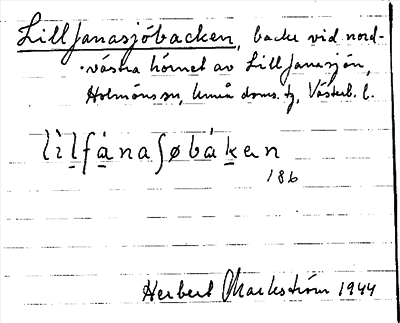 Lill Janasjöbacken, backe vid nord-
västra hörnet av Lill Janasjön,
Holmöns sn, Umeå doms. tg, Västerb. l.
lìl̲fá̲naʃøbák̲en
186
Herbert Markström 1944